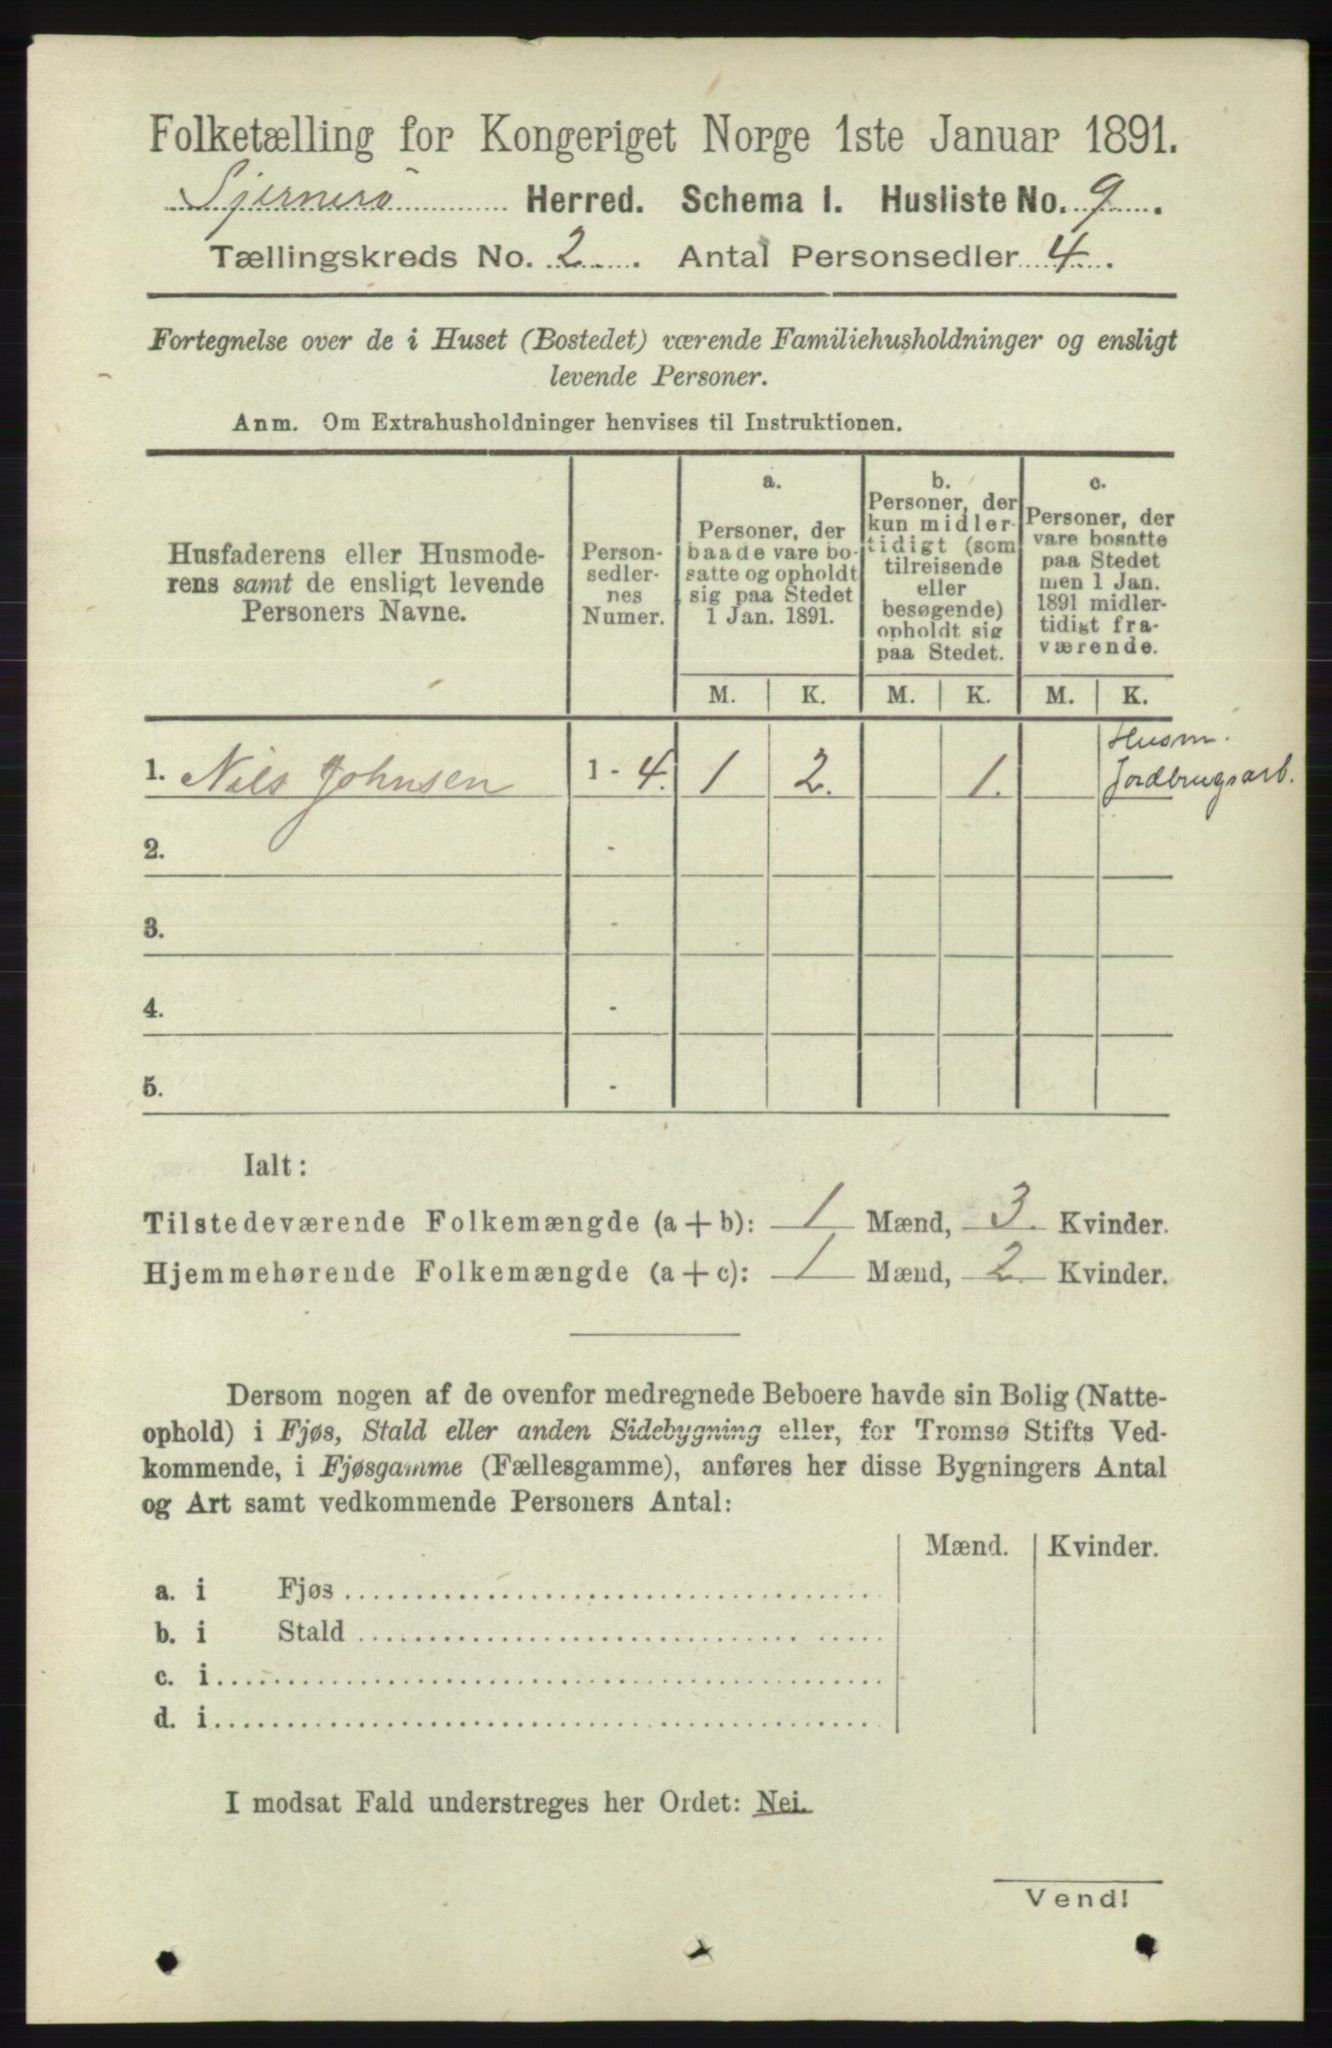 Folketælling for Kongeriget Norge 1ste Januar 1891.
Sjernerö Herred. Schema I. Husliste No. 9.
Tællingskreds No. 2. Antal Personsedler 4.
Fortegnelse over de i Huset (Bostedet) værende Familiehusholdninger og ensligt
levende Personer.
Anm. Om Extrahusholdninger henvises til Instruktionen.
Husfaderens eller Husmode-
rens samt de ensligt levende
Personers Navne.
Person-
sedler-
nes
Numer.
a.
Personer, der
baade vare bo-
satte og opholdt
sig paa Stedet
1 Jan. 1891.
b.
Personer, der
kun midler-
tidigt (som
tilreisende
eller
besøgende)
opholdt sig
paa Stedet.
c.
Personer, der
vare bosatte
paa Stedet
men 1 Jan.
1891 midler-
tidigt fra-
værende.
M. K. M. K. M. K.
Husm.
1. Nils Johnsen 1 - 4. 1 2. 1. Jordbrugsarb.
2. -
3. -
4. -
5. -
Ialt:
Tilstedeværende Folkemængde (a + b): 1 Mænd, 3. Kvinder.
Hjemmehørende Folkemængde (a + c): 1 Mænd, 2. Kvinder.
Dersom nogen af de ovenfor medregnede Beboere havde sin Bolig (Natte-
ophold) i Fjøs, Stald eller anden Sidebygning eller, for Tromsø Stifts Ved-
kommende, i Fjøsgamme (Fællesgamme), anføres her disse Bygningers Antal
og Art samt vedkommende Personers Antal:
Mænd. Kvinder.
a. i Fjøs
b. i Stald
c. i
d. i
I modsat Fald understreges her Ordet: Nei.
Vend!